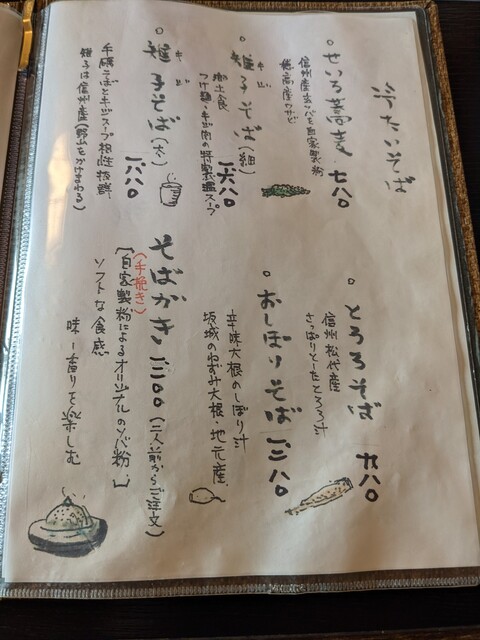 冷たいそば
せいろ蕎麦 七八〇
信州産玄ソバを自家製粉
穂高産わさび
雉子そば(細) 一六八〇
キジ
郷土食
つけ麺・キジ肉の特製温スープ
雉子そば(太) 一八八〇
キジ
手碾そばとキジスープ相性抜群
雉子は信州産
とろろそば 九八〇
信州松代産
さっぱりとしたとろろ汁
おしぼりそば 一二八〇
辛味大根のしぼり汁
坂城のねずみ大根・地元産
そばがき 一三〇〇(二人前からご注文)
(手挽き)
「自家製粉によるオリジナルのソバ粉」
ソフトな食感
味・香りを楽しむ